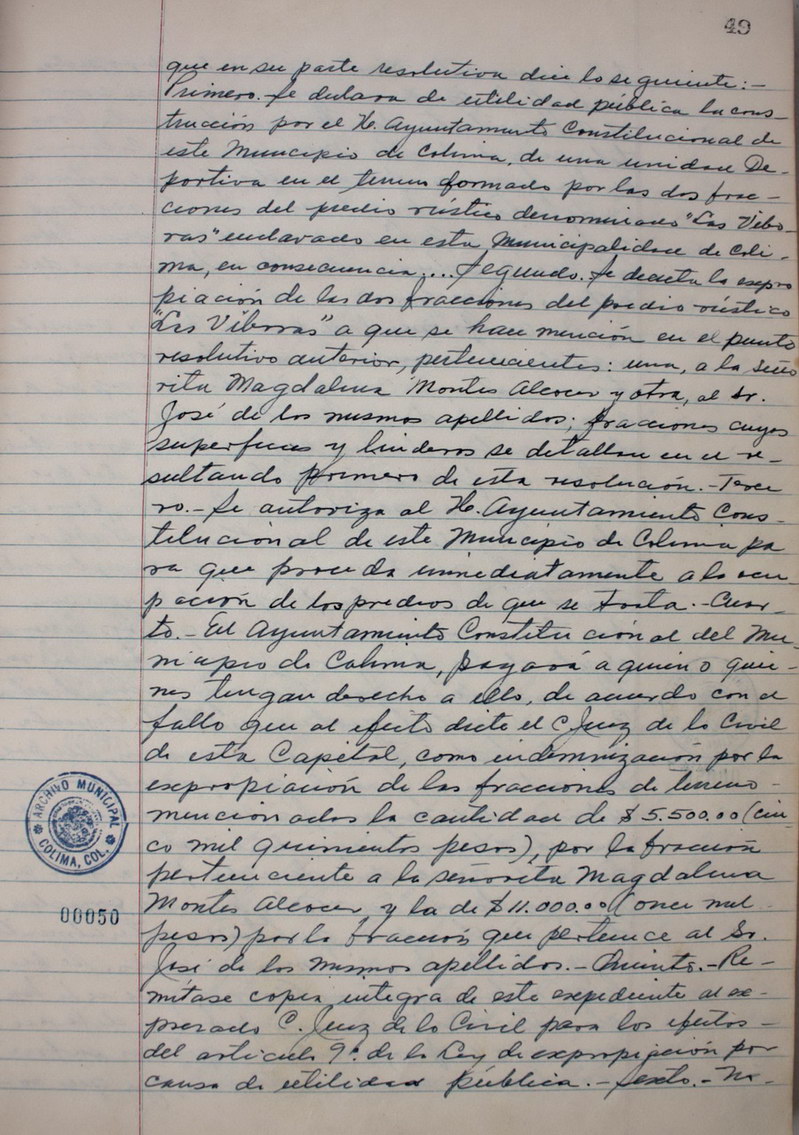 49
que en su parte resolutiva dice lo seguiente:-
Primero. Se declara de utilidad pública la cons-
trucción por el H. Ayuntamiento Constitucional de
este Municipio de Colima, de una unidad De-
portiva en el terreno formado por las dos frac-
ciones del predio rústico denominado "Las Vibo-
ras" enclavado en esta Municipalidad de Coli-
ma, en consecuencia... Segundo. Se decreta la expro
piación de las dos fracciones del predio rústico
"Las Víboras" a que se hace mención en el punto
resolutivo anterior, pertenecientes: una, a la Seño
rita Magdalena Montes Alcocer y otra, al Sr.
José de los mismos apellidos; fracciones cuyas
superficies y linderos se detallan en el re-
sultando primero de esta resolución.-Terce
ro.- Se autoriza al H. Ayuntamiento Cons-
titucional de este Municipio de Colima pa
ra que proceda inmediatamente a la ocu-
pación de los predios de que se trata.-Cuar-
to.- El Ayuntamiento Constitucional del Mu-
nicipio de Colima, pagará a quien o quie-
nes tengan derecho a ello, de acuerdo con el
fallo que al efecto dicte el C. Juez de lo Civil
de esta Capital, como indemnización por la
expropiación de las fracciones de terreno-
mencionados la cantidad de $5.500.00 (cin-
co mil quinientos pesos), por la fracción
perteneciente a la señorita Magdalena
Montes Alcocer y la de $11.000.00 (once mil
pesos) por la fracción que pertenece al Sr.
José de los mismos apellidos.- Quinto.-Re-
mítase copia integra de este expediente al ex-
presado C. Juez de lo Civil para los efectos-
del articulo 9º. de la Ley de expropiación por
causa de utilidad pública.- Sexto.-No-
ARCHIVO MUNICIPAL
COLIMA, COL.
00050